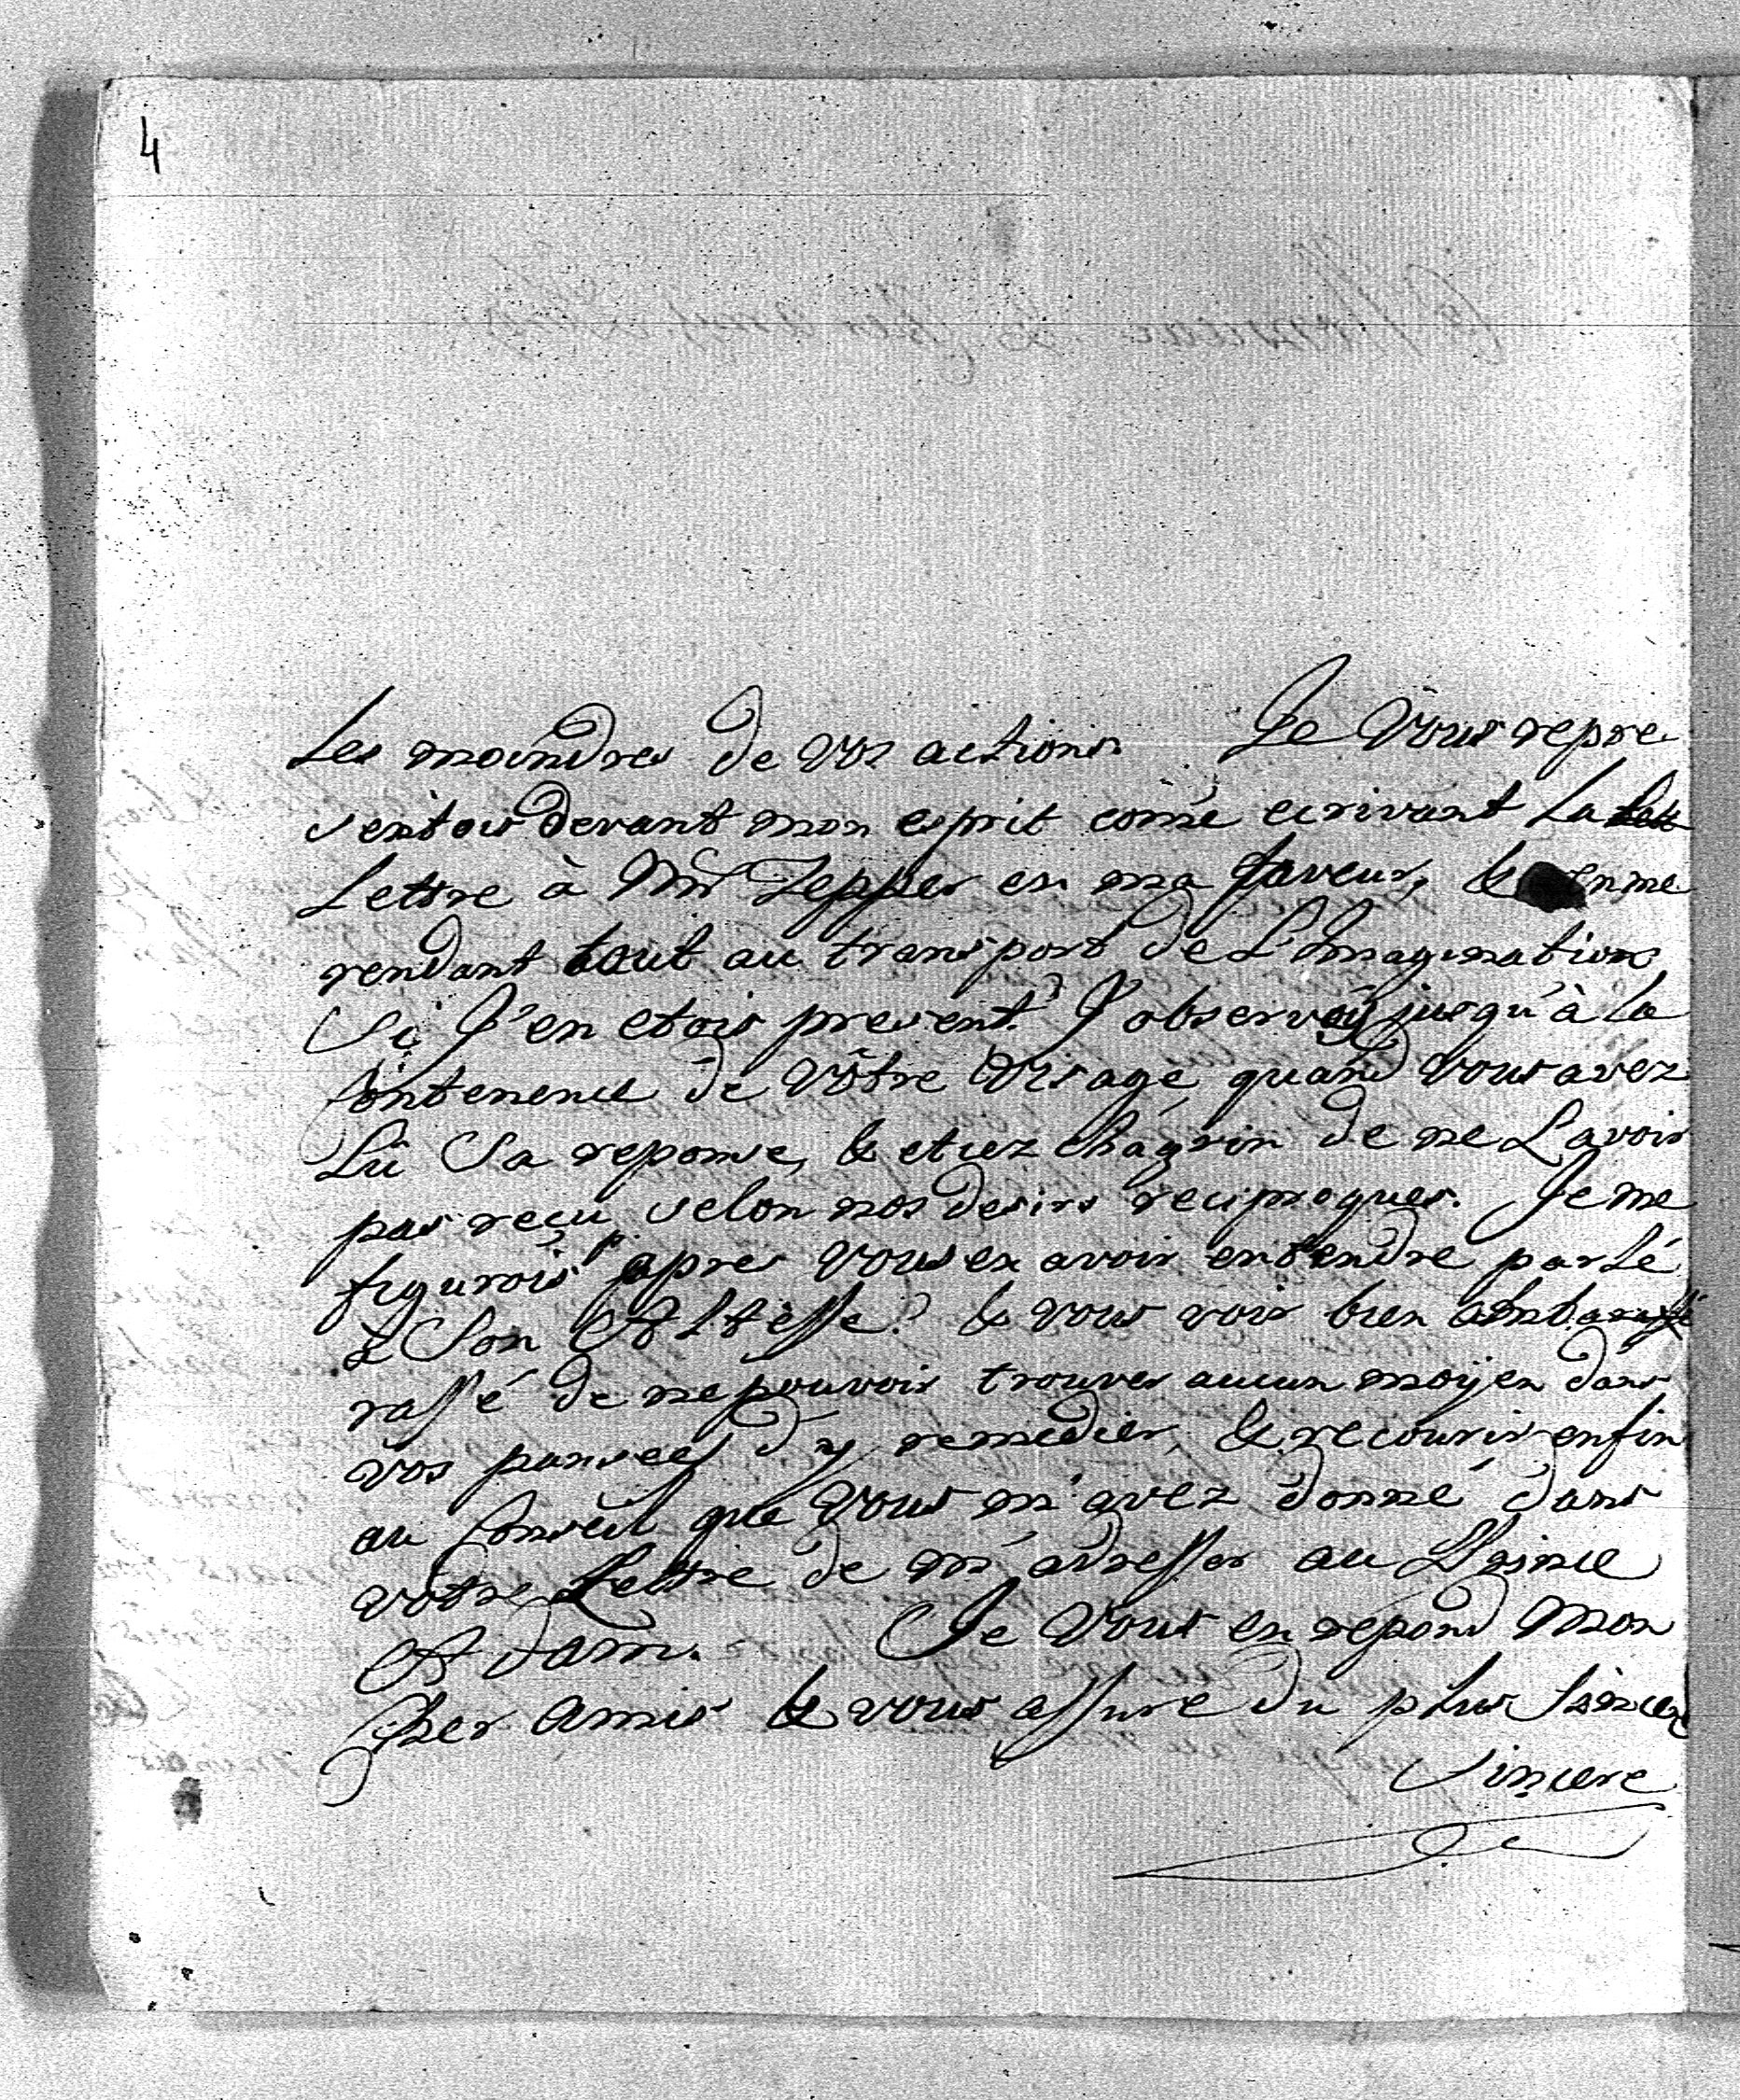 4
Les moindres de vos actions. Je vous repre
sentois devant mon esprit come ecrivant La
Lettre à Mr Tepper en ma faveur, & en me
rendant tout au transport de L'imagination
Si J'en etois present. J'observay jusqu'à la
Contenence de Vôtre Visage, quand vous avez
Lû Sa reponse, & etiez chagrin de ne L'avoir
pas reçu selon nos desirs reciproques. Je me
figurois apres vous en avoir entendre parlé
à Son Altesse. & vous voir bien
rassé de ne pouvoir trouver aucun moÿen dans
vos pansees d'y remedier, & recourir enfin
au Conseil que vous m'avez donné dans
votre Lettre de m'adresser au Prince
Adam. Je vous en repond mon
Cher Amis & vous assure du plus
Sincere